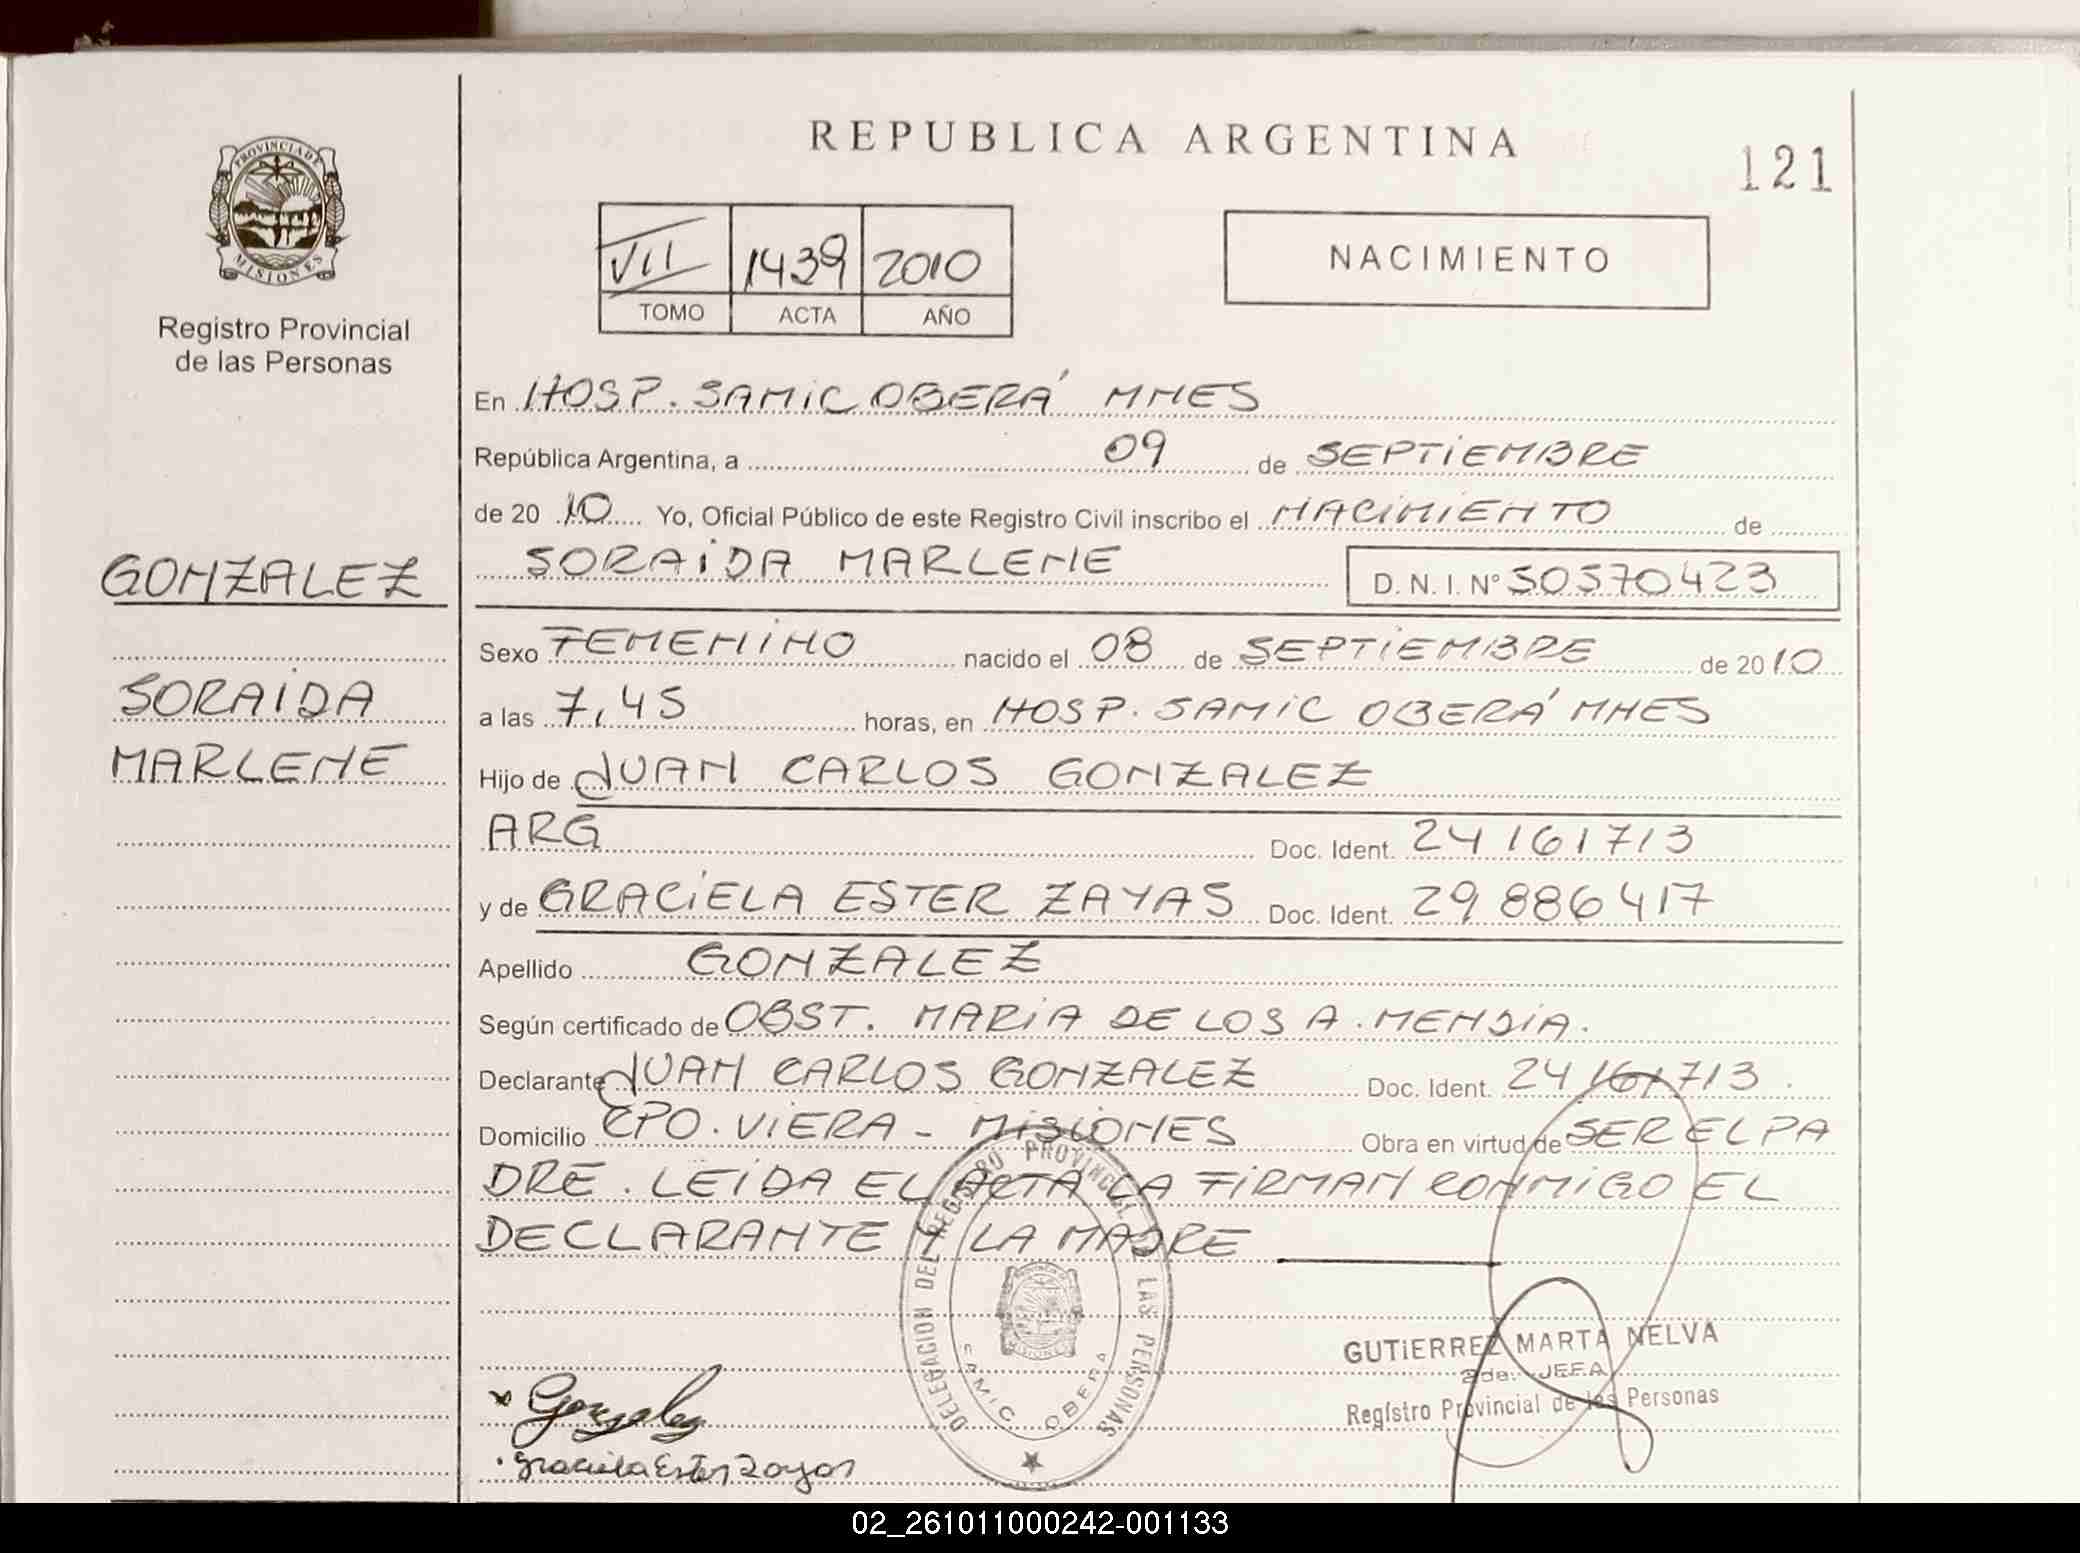 REPUBLICA ARGENTINA
121
PROVINCIA DE
MISIONES
Registro Provincial
de las Personas
VII 1439 2010
TOMO ACTA AÑO
NACIMIENTO
En HOSP. SAMIC OBERÁ MNES
República Argentina, a 09 de SEPTIEMBRE
de 2010 Yo, Oficial Público de este Registro Civil inscribo el NACIMIENTO de
SORAIDA MARLENE D. N. I. Nº 50570423
GONZALEZ
SORAIDA
MARLENE
Sexo FEMENINO nacido el 08 de SEPTIEMBRE de 2010
a las 7,45 horas, en HOSP. SAMIC OBERÁ MNES
Hijo de JUAN CARLOS GONZALEZ
ARG Doc. Ident. 24161713
y de GRACIELA ESTER ZAYAS Doc. Ident. 29886417
Apellido GONZALEZ
Según certificado de OBST. MARIA DE LOS A. MENDIA.
Declarante JUAN CARLOS GONZALEZ Doc. Ident. 24161713.
Domicilio CPO. VIERA - MISIONES Obra en virtud de SER EL PA
DRE. LEIDA EL ACTA LA FIRMAN CONMIGO EL
DECLARANTE Y LA MADRE
DELEGACION DEL REGISTRO PROVINCIAL DE LAS PERSONAS
SAMIC OBERA
GUTIERREZ MARTA NELVA
2da. JEFA
Registro Provincial de las Personas
Gonzalez
Graciela Ester Zayas
02_261011000242-001133